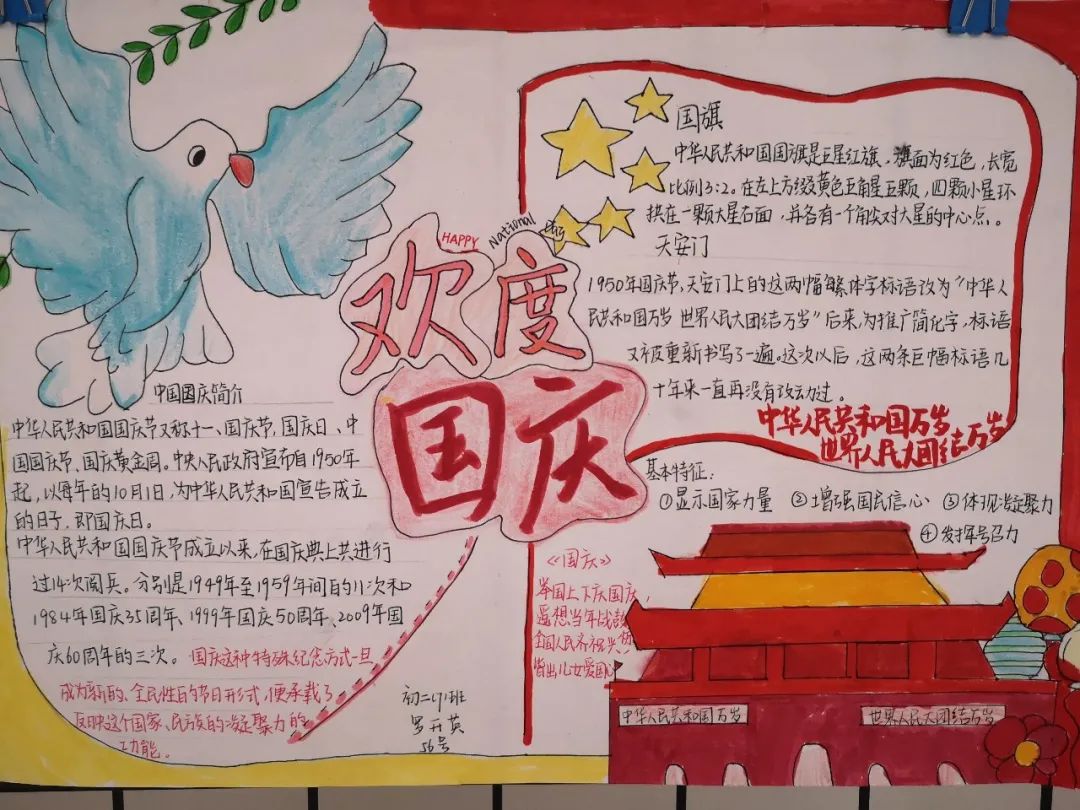 HAPPY National Day
欢度
国庆
中国国庆简介
中华人民共和国国庆节又称十一、国庆节,国庆日、中
国国庆节、国庆黄金周。中央人民政府宣布自1950年
起,以每年的10月1日,为中华人民共和国宣告成立
的日子,即国庆日。
中华人民共和国国庆节成立以来,在国庆典上共进行
过14次阅兵。分别是1949年至1959年间的11次和
1984年国庆35周年、1999年国庆50周年、2009年国
庆60周年的三次。国庆这种特殊纪念方式一旦
成为新的、全民性的节日形式,便承载了
反映这个国家、民族的凝聚力的
功能。
初二(7)班
罗开英
56号
国旗
中华人民共和国国旗是五星红旗,旗面为红色,长宽
比例3:2。在左上方缀黄色五角星五颗,四颗小星环
拱在一颗大星右面,并各有一个角尖对大星的中心点。
天安门
1950年国庆节,天安门上的这两幅繁体字标语改为“中华人
民共和国万岁 世界人民大团结万岁”后来,为推广简化字,标语
又被重新书写了一遍。这次以后,这两条巨幅标语几
十年来一直再没有改动过。
中华人民共和国万岁
世界人民大团结万岁
基本特征:
①显示国家力量 ②增强国民信心 ③体现凝聚力
④发挥号召力
《国庆》
举国上下庆国庆,
遥想当年战鼓
全国人民齐祝兴
皆出儿女爱国心
中华人民共和国万岁
世界人民大团结万岁